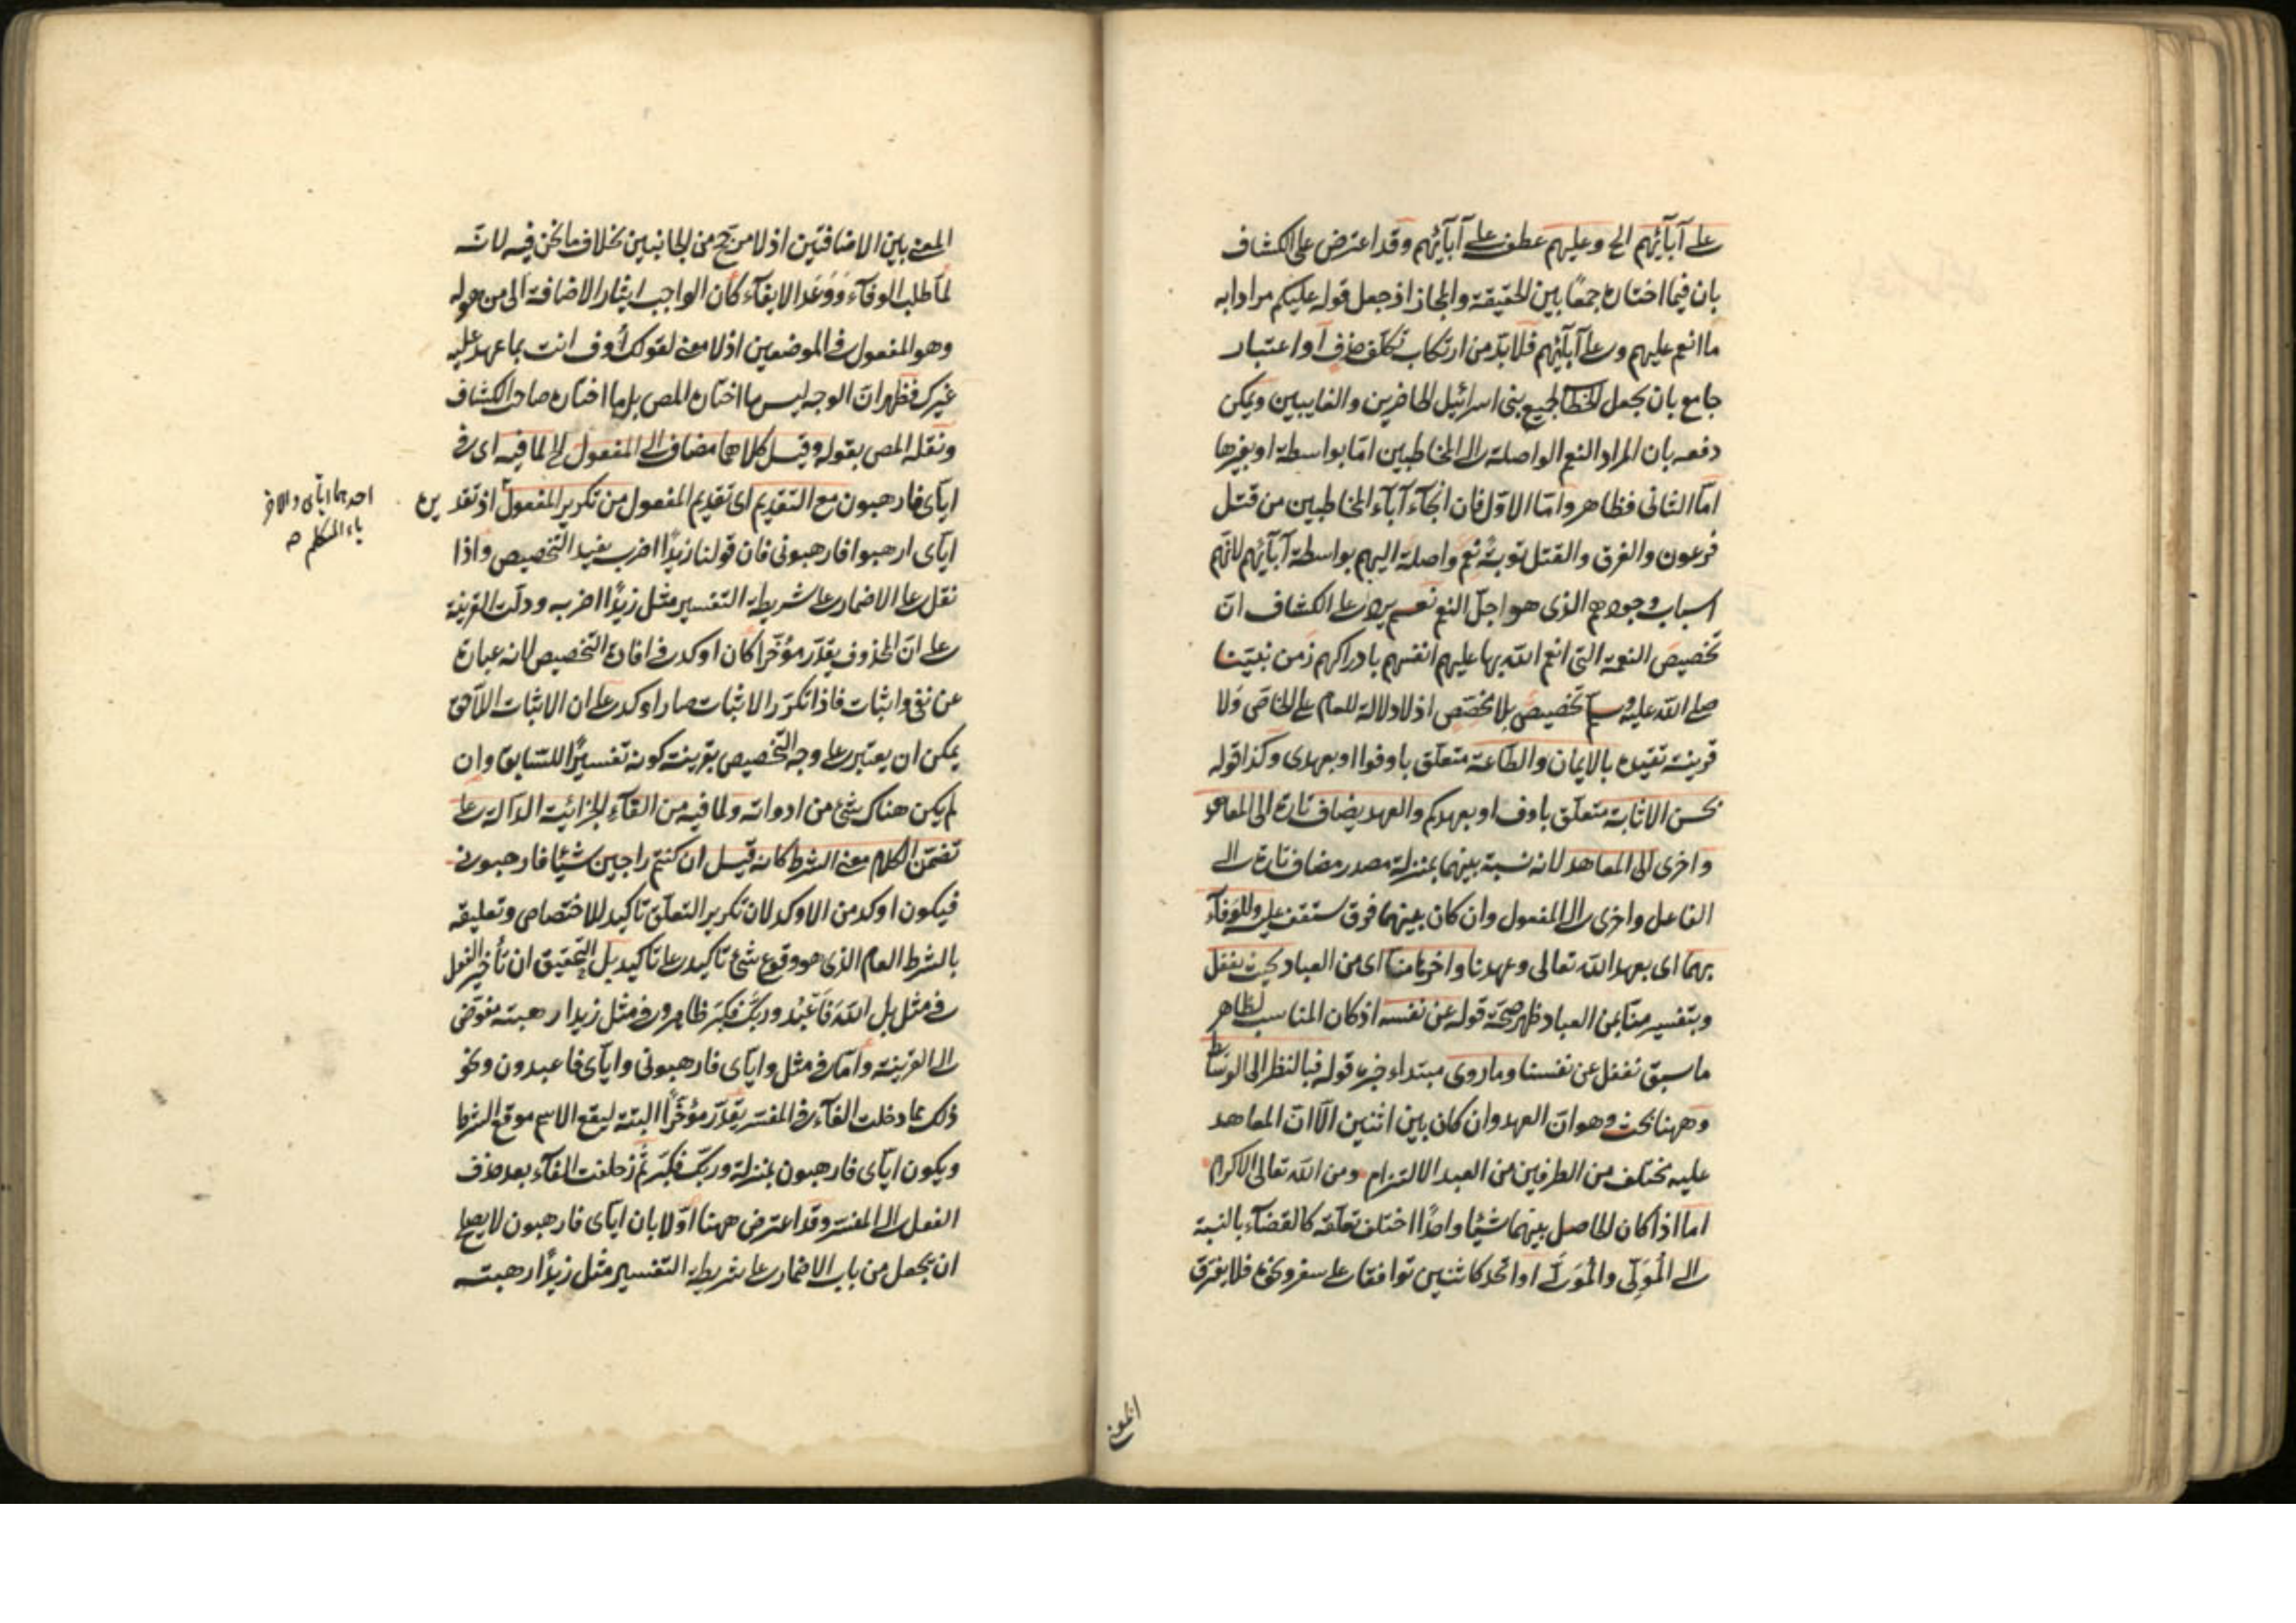 على آبائهم الخ وعليهم عطف على آبائهم وقد اعترض على الكشاف
بان فيما اختاره جمعًا بين الحقيقة والمجاز اذ جعل قوله عليكم مرادا به
ما انعم عليهم وعلى آبائهم فلا بدّ من ارتكاب تكلّف حذف او اعتبار
جامع بان يجعل الخطاب لجميع بنى اسرائيل الحاضرين والغايبين ويمكن
دفعه بان المراد النعم الواصلة الى المخاطبين امّا بواسطة او بغيرها
امّا الثانى فظاهر وامّا الاوّل فان انجآء آبآء المخاطبين من قتل
فرعون والغرق والقتل توبةً نعم واصلة اليهم بواسطة آبائهم لانّهم
اسباب وجودهم الذى هو اجلّ النعم نعم يرد على الكشاف انّ
تخصيص النعمة التى انعم الله بها عليهم انفسهم بادراكهم زمن نبيّنا
صلى الله عليه وسلم تخصيص بلا مخصّص اذ لا دلالة للعام على الخاصّ ولا
قرينة تقيده بالايمان والطّاعة متعلّق باوفوا او بعهدى وكذا قوله
بحسن الاثابة متعلّق باوف او بعهدكم والعهد يضاف تارة الى المعاهِد
واخرى الى المعاهد لانه نسبة بينهما بمنزلة مصدر مضاف تارة الى
الفاعل واخرى الى المفعول وان كان بينهما فرق ستقف عليه وللوفآء
بهما اى بعهد الله تعالى وعهدنا وآخرها منّا اى من العباد بحيث يغفل
وبتفسير منّا بمن العباد ظهر صحّة قوله عن نفسه اذ كان المناسب لظاهر
ما سبق نغفل عن نفسنا وما روى مبتداء خبره قوله فبالنظر الى الوسائط
وههنا بحث وهو انّ العهد وان كان بين اثنين الّا انّ المعاهد
عليه يختلف من الطرفين من العبد الالتزام ومن الله تعالى الاكرام
امّا اذا كان الحاصل بينهما شيئا واحدًا اختلف تعلّقه كالقضآء بالنسبة
الى المُوَلِّى والمُوَلَّى او اتّحد كاثنين توافقا على سفر ونحوه فلا يفترق
المعنى بين الاضافتين اذ لا مرجّح من الجانبين بخلاف ما نحن فيه لانّه
لمّا طلب الوفآء ووَعَد الايفآء كان الواجب ايثار الاضافة الى من هو له
وهو المفعول فى الموضعين اذ لا معنى لقولك أوف انت بما عهد عليه
غيرك فظهر انّ الوجه ليس ما اختاره المص بل ما اختاره صاحب الكشاف
ونقله المص بقوله وقيل كلاهما مضاف الى المفعول لما فيه اى فى
ايّاى فارهبون مع التقديم اى تقديم المفعول من تكرير المفعول اذ تقديره
ايّاى ارهبوا فارهبونى فان قولنا زيدًا اضرب يفيد التخصيص واذا
نقل على الاضمار على شريطة التفسير مثل زيدًا اضربه ودلّت القرينة
على انّ المحذوف يقدّر مؤخّرا كان اوكد فى افادة التخصيص لانه عبارة
عن نفى واثبات فاذا تكرّر الاثبات صار اوكد على ان الاثبات اللاحق
يمكن ان يعتبر على وجه التخصيص بقرينة كونه تفسيرًا للسّابق وان
لم يكن هناك شئ من ادواته ولما فيه من الفآء الجزائية الدّالة على
تضمّن الكلام معنى الشرط كانه قيل ان كنتم راهبين شيئًا فارهبونى
فيكون اوكد من الاوكد لان تكرير التعلّق تاكيد للاختصاص وتعليقه
بالشرط العام الذى هو وقوع شئ تاكيد على تاكيد بل التحقيق ان تأخير الفعل
فى مثل بل اللّهَ فَاعْبُد وربّك فكبّر ظاهر وفى مثل زيدا رهبته مفوّض
الى القرينة وامّا فى مثل وايّاى فارهبونى وايّاى فاعبدون ونحو
ذلك بما دخلت الفآء فى المفسّر يقدّر مؤخّرًا البتة ليقع الاسم موقع الشرط
ويكون ايّاى فارهبون بمنزلة وربّك فكبّر ثم زحلفت الفآء بعد حذف
الفعل الى المفسّر وقد اعترض ههنا اوّلا بان ايّاى فارهبون لا يصلح
ان يجعل من باب الاضمار على شريطة التفسير مثل زيدًا رهبته
احدهما ايّاى والآخر
ياء المتكلم
المعنى